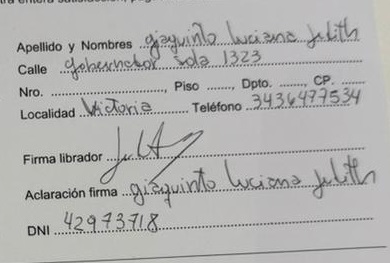 Apellido y Nombres giaquinto luciana Judith
Calle Gobernador Sola 1323
Nro. ............, Piso ......., Dpto. ......, CP. ......
Localidad Victoria Teléfono 3436477534
Firma librador
Aclaración firma giaquinto luciana Judith
DNI 42973718